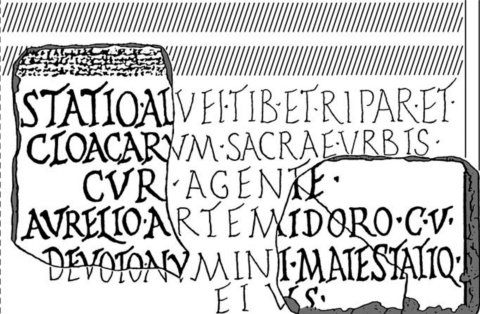 STATIO·ALVEI·TIB·ET·RIPAR·ET·
CLOACARVM·SACRAE·VRBIS·
CVR·AGENTE·
AVRELIO·ARTEMIDORO·C·V·
DEVOTO·NVMINI·MAIESTATIQ·
EIVS·